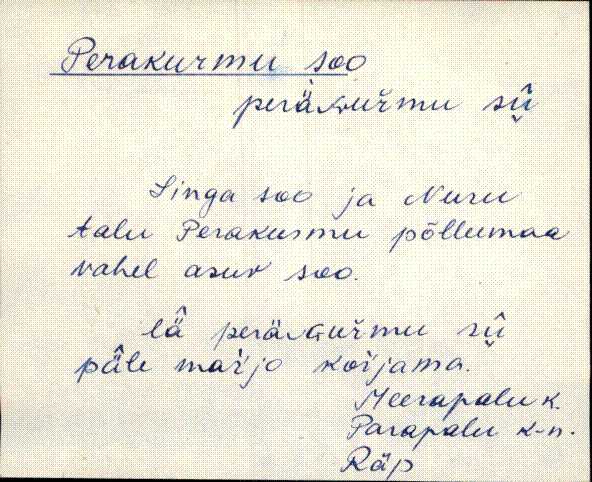 Perakurmu soo
peräkuřmu sū̬
Singa soo ja Nuru
talu Perakurmu põllumaa
vahel asuv soo.
lä̂ peräkuřmu sū̬
pä̂le mar'jo kor'jama.
Meerapalu k.
Parapalu k-n.
Räp